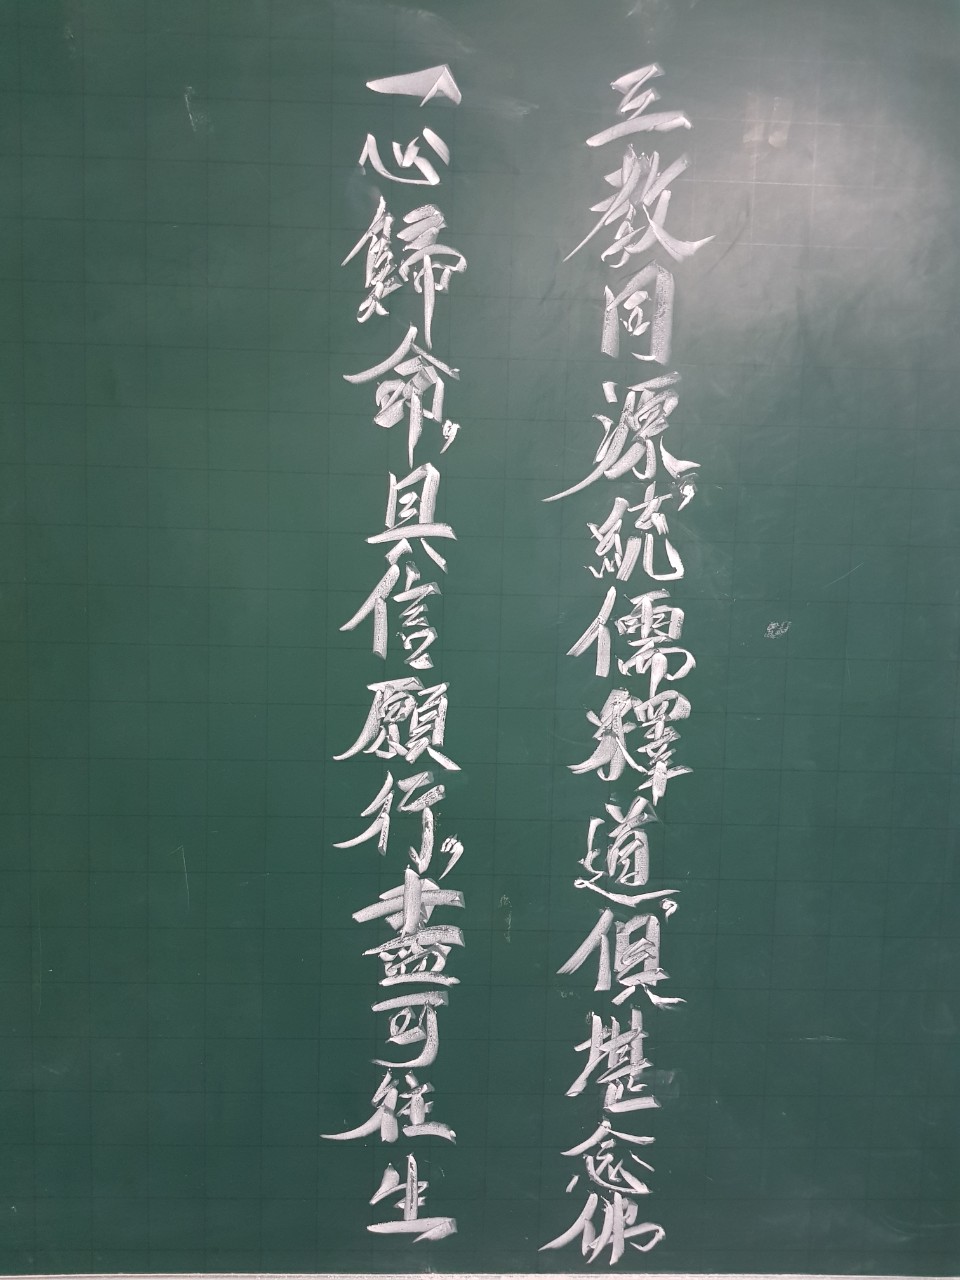 三教同源，統儒釋道，俱堪念佛
一心歸命，具信願行，盡可往生